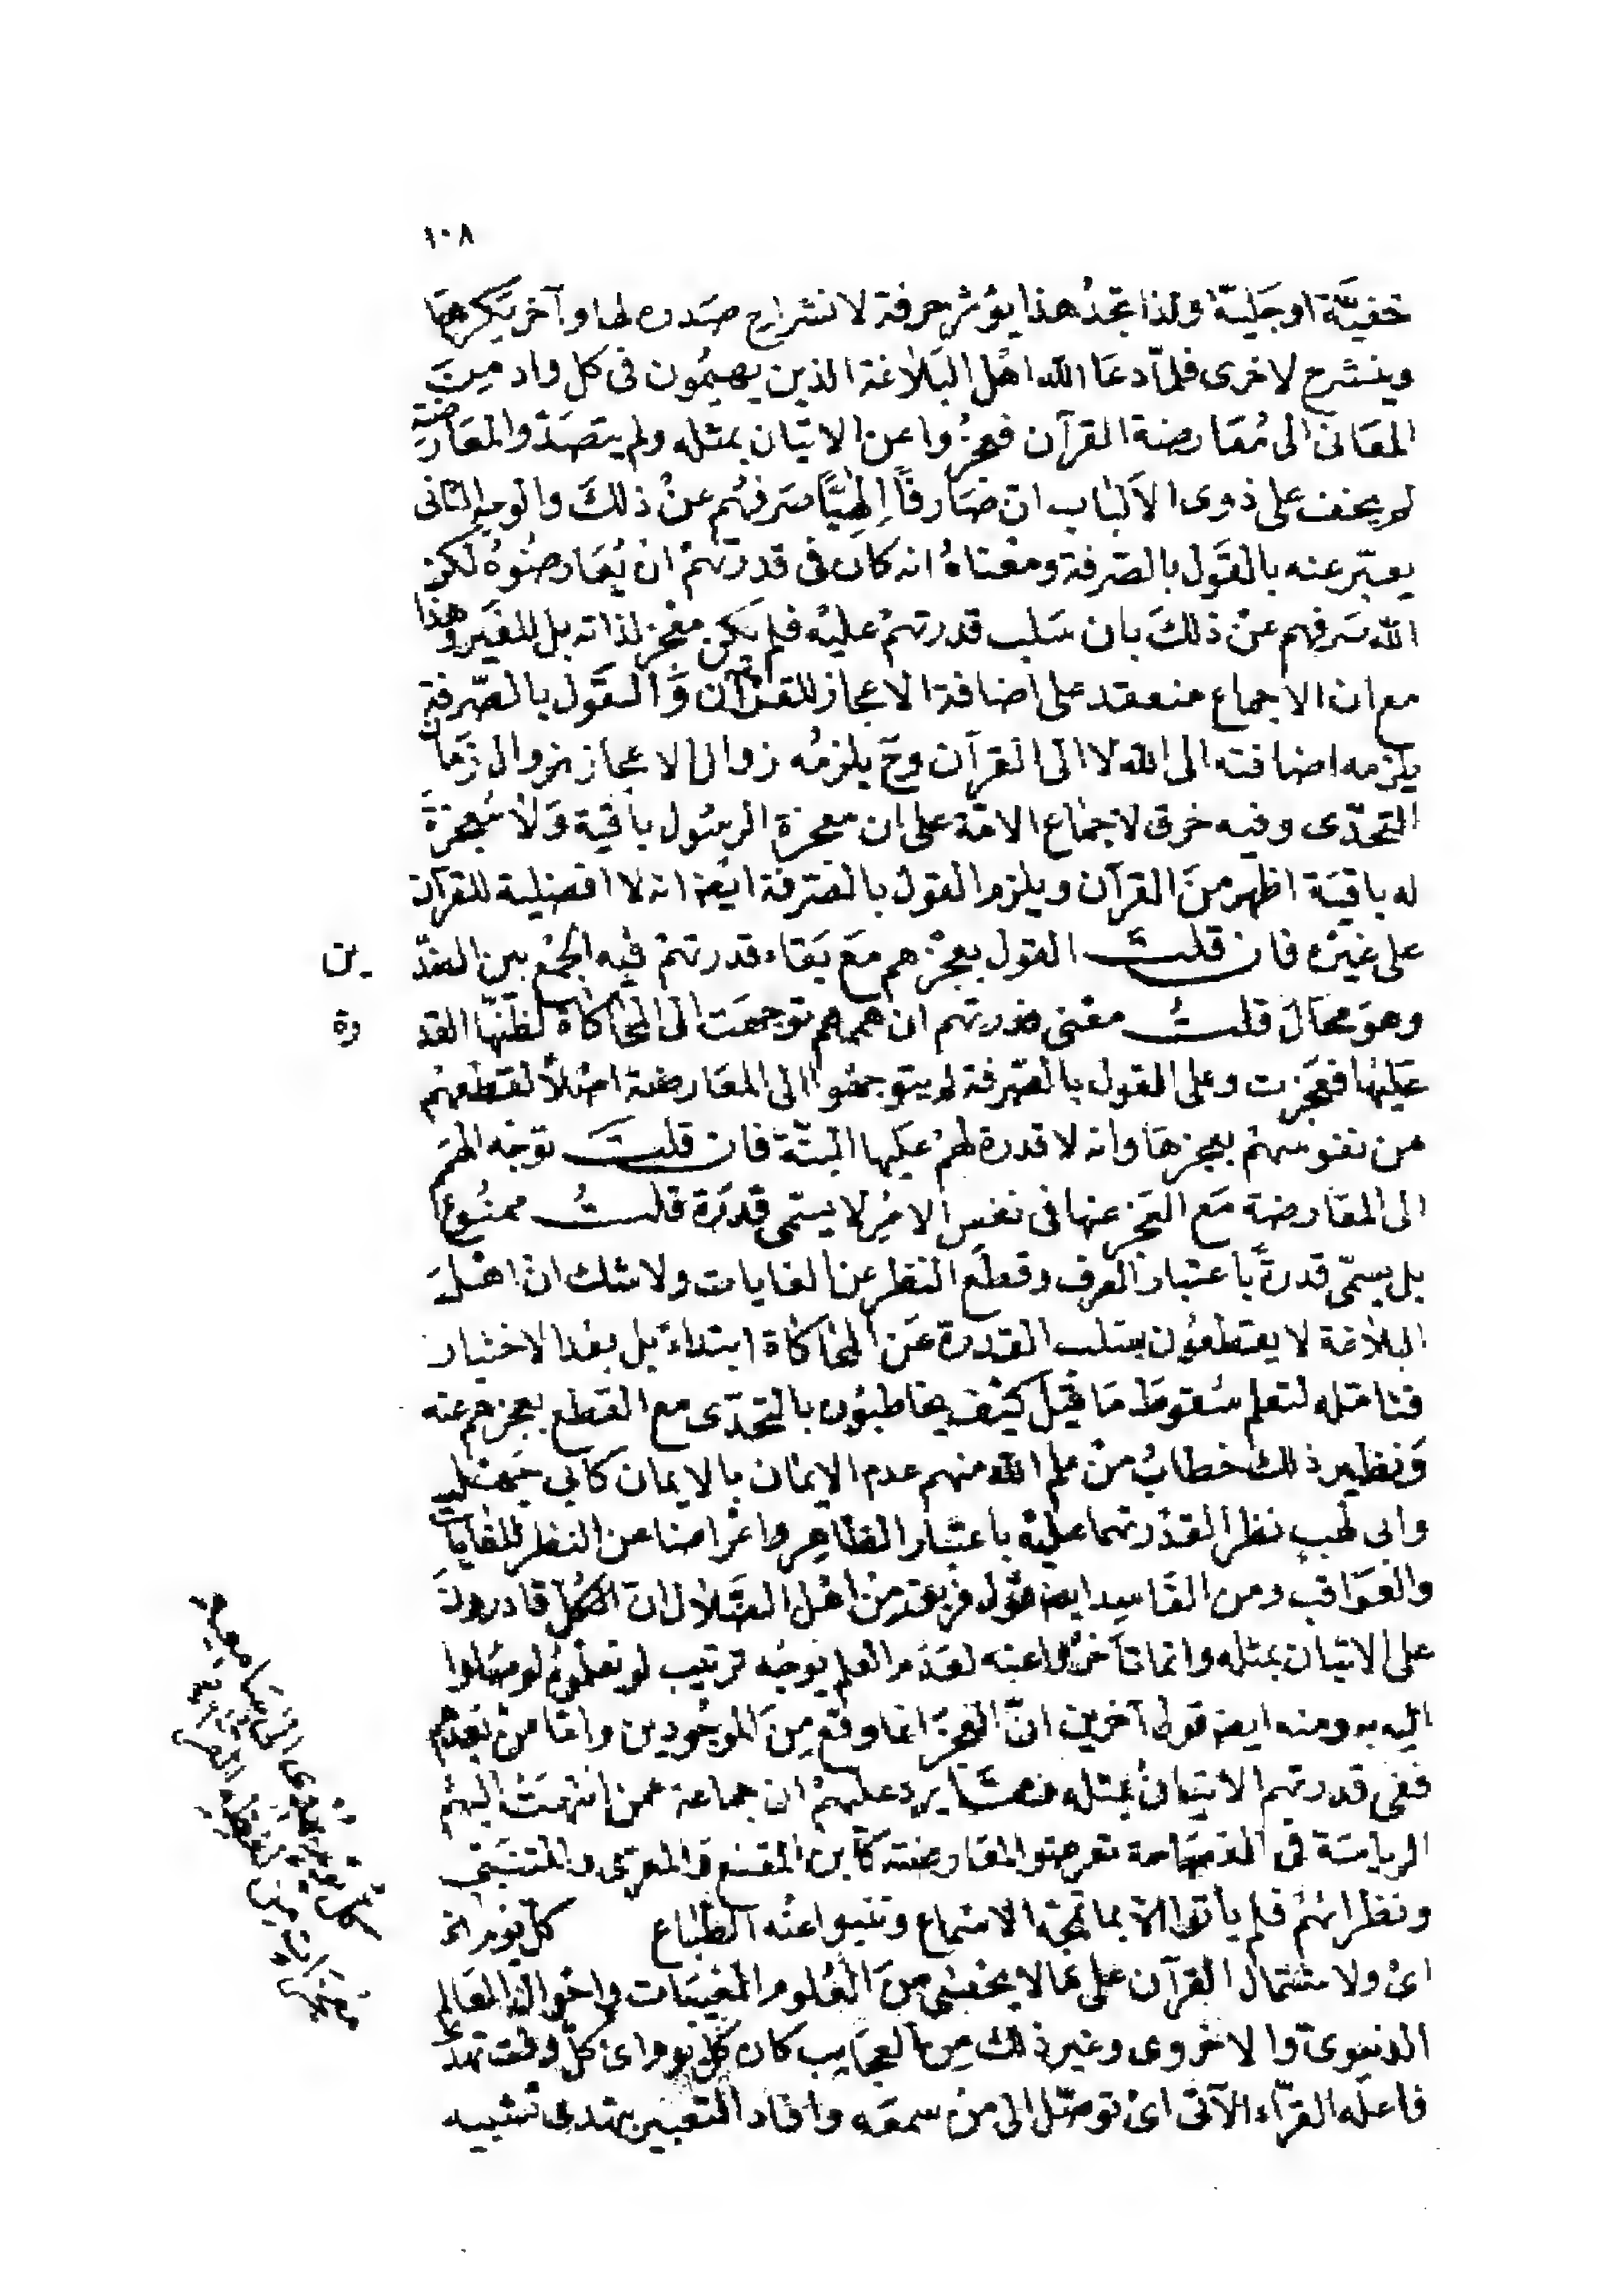 ١٠٨
خفيّة او جَليّة ولذا تجدُ هذا يؤثر حرفة لانشراح صَدره لها وآخر يَكرهها
وينشرح لاخرى فلمّا دعَا الله اهْل البَلاغة الذين يهيمُون فى كل واد مِنَ
المعَانى الى مُعَارضة القرآن فعجزُوا عن الاتيان بمثله ولم يتصَدّوا لمعَارضته
لم يخف على ذوى الاَلبَاب انّ صَارفاً اِلٰهيّاً صَرفهُم عنْ ذلكَ والوجه الثانى
يعبّر عنه بالقَول بالصّرفة ومعْناهُ انه كان فى قدرتهمْ ان يُعَارضُوهُ لكن
الله صَرفهم عنْ ذلكَ بان سَلب قدرتهمْ عليْه فلم يكن معْجز لذاته بل للغَير وهذا
مع ان الاجماع منعقد على اضافة الاعجاز للقرْآن وَالقَول بالصّرفة
يلزمه اضافته الى الله لا الى القرآن وحَ يلزمُه زوال الاعجاز بزوال زمَان
التحدّى وفيه خرق لاجمَاع الامّة على ان معجزة الرسُول باقية وَلا مُعجزةَ
له باقيَة اظهر منَ القرآن ويلزم القول بالصَرفة ايْضا انه لا افضلية للقرآن
على غيْره فان قلتَ القول بعجْزهم مَع بَقاء قدرتهمْ فيْه الجمْع بين الضدّ ـين
وهوَ محَال قلتُ معْنى قدرتهم ان هممهم توجهَت الى المحَاكاة لظنّها القد رة
عَليْها فعَجَزت وعلى القول بالصّرفة لم يتوجهُوا الى المعَارضة اصْلاً لقَطعهمْ
من نفوسهمْ بعجزهَا وانه لا قدرة لهمْ عَليها البتّة فان قلتَ توجّه الهمَم
الى المعَارضة مَع العَجْز عنها فى نفسِ الامْرِ لا يسَمّى قدرَة قلتُ ممنُوع
بل يسمّى قدرةً باعتبار العرف وقطع النظر عن الغايات ولا شك انّ اهْلَ
البلاغة لا يقطعُون بسَلب القدرة عَن المحَاكاة ابتداءً بل بعْد الاختبار
فتامّله لتعلم سُقوط مَا قيْلَ كيْف يخَاطبُون بالتّحدّى مع القَطع بعجزهم عنه
وَنظير ذلك خطابُ منْ علم الله منهم عدم الايمان بالايمان كابى جَهْل
وابى لهبٍ نظرا لقدْرتهما عليْه باعتبَار الظاهِر واعْراضا عن النظر للغايَات
والعوَاقب ومن الفَاسِد ايضا قول فريق مِنْ اهْل الضّلال انّ الكُلّ قادرونَ
على الاتيان بمثله وانما تَأخّرُوا عنه لعَدْم العلم بوجْه ترتيب لو تعلّموُه لوصَلوا
اليه به ومنه ايضا قول آخرين انّ العَجْزَ انما وقع مِنَ الموْجُودين وامّا منْ بَعْدهُم
ففى قدرتهم الاتيَانُ بمثله وهذَا يرد عليهمْ ان جماعة ممن انتهَتْ اليهُم
الرياسَة فى الفصَاحة تعرضوا لمعَارضته كابن المقفع وَالمعرّى والمتنبّى
ونظرائهُم فلم يأتوا الا بما تمجّه الاسْماع وتنبو اعنْه الطبَاع كلّ يَوم الخ
اىْ ولاشتمال القرآن على مَا لا يخفىٰ مِنَ العُلوم المغيبَات واحْوال العَالم
الدنيوىّ والاخروى وغير ذلك مِن العجَايب كان كلّ يوم اى كلّ وقت تهدى
فاعله القرّاء الآتى اىْ توصّل الى منْ سمعَه وافاد التعبير بتهدى تشبيه
كل يوم تهدى الى سامعيه
معجزات من لفظه القراء